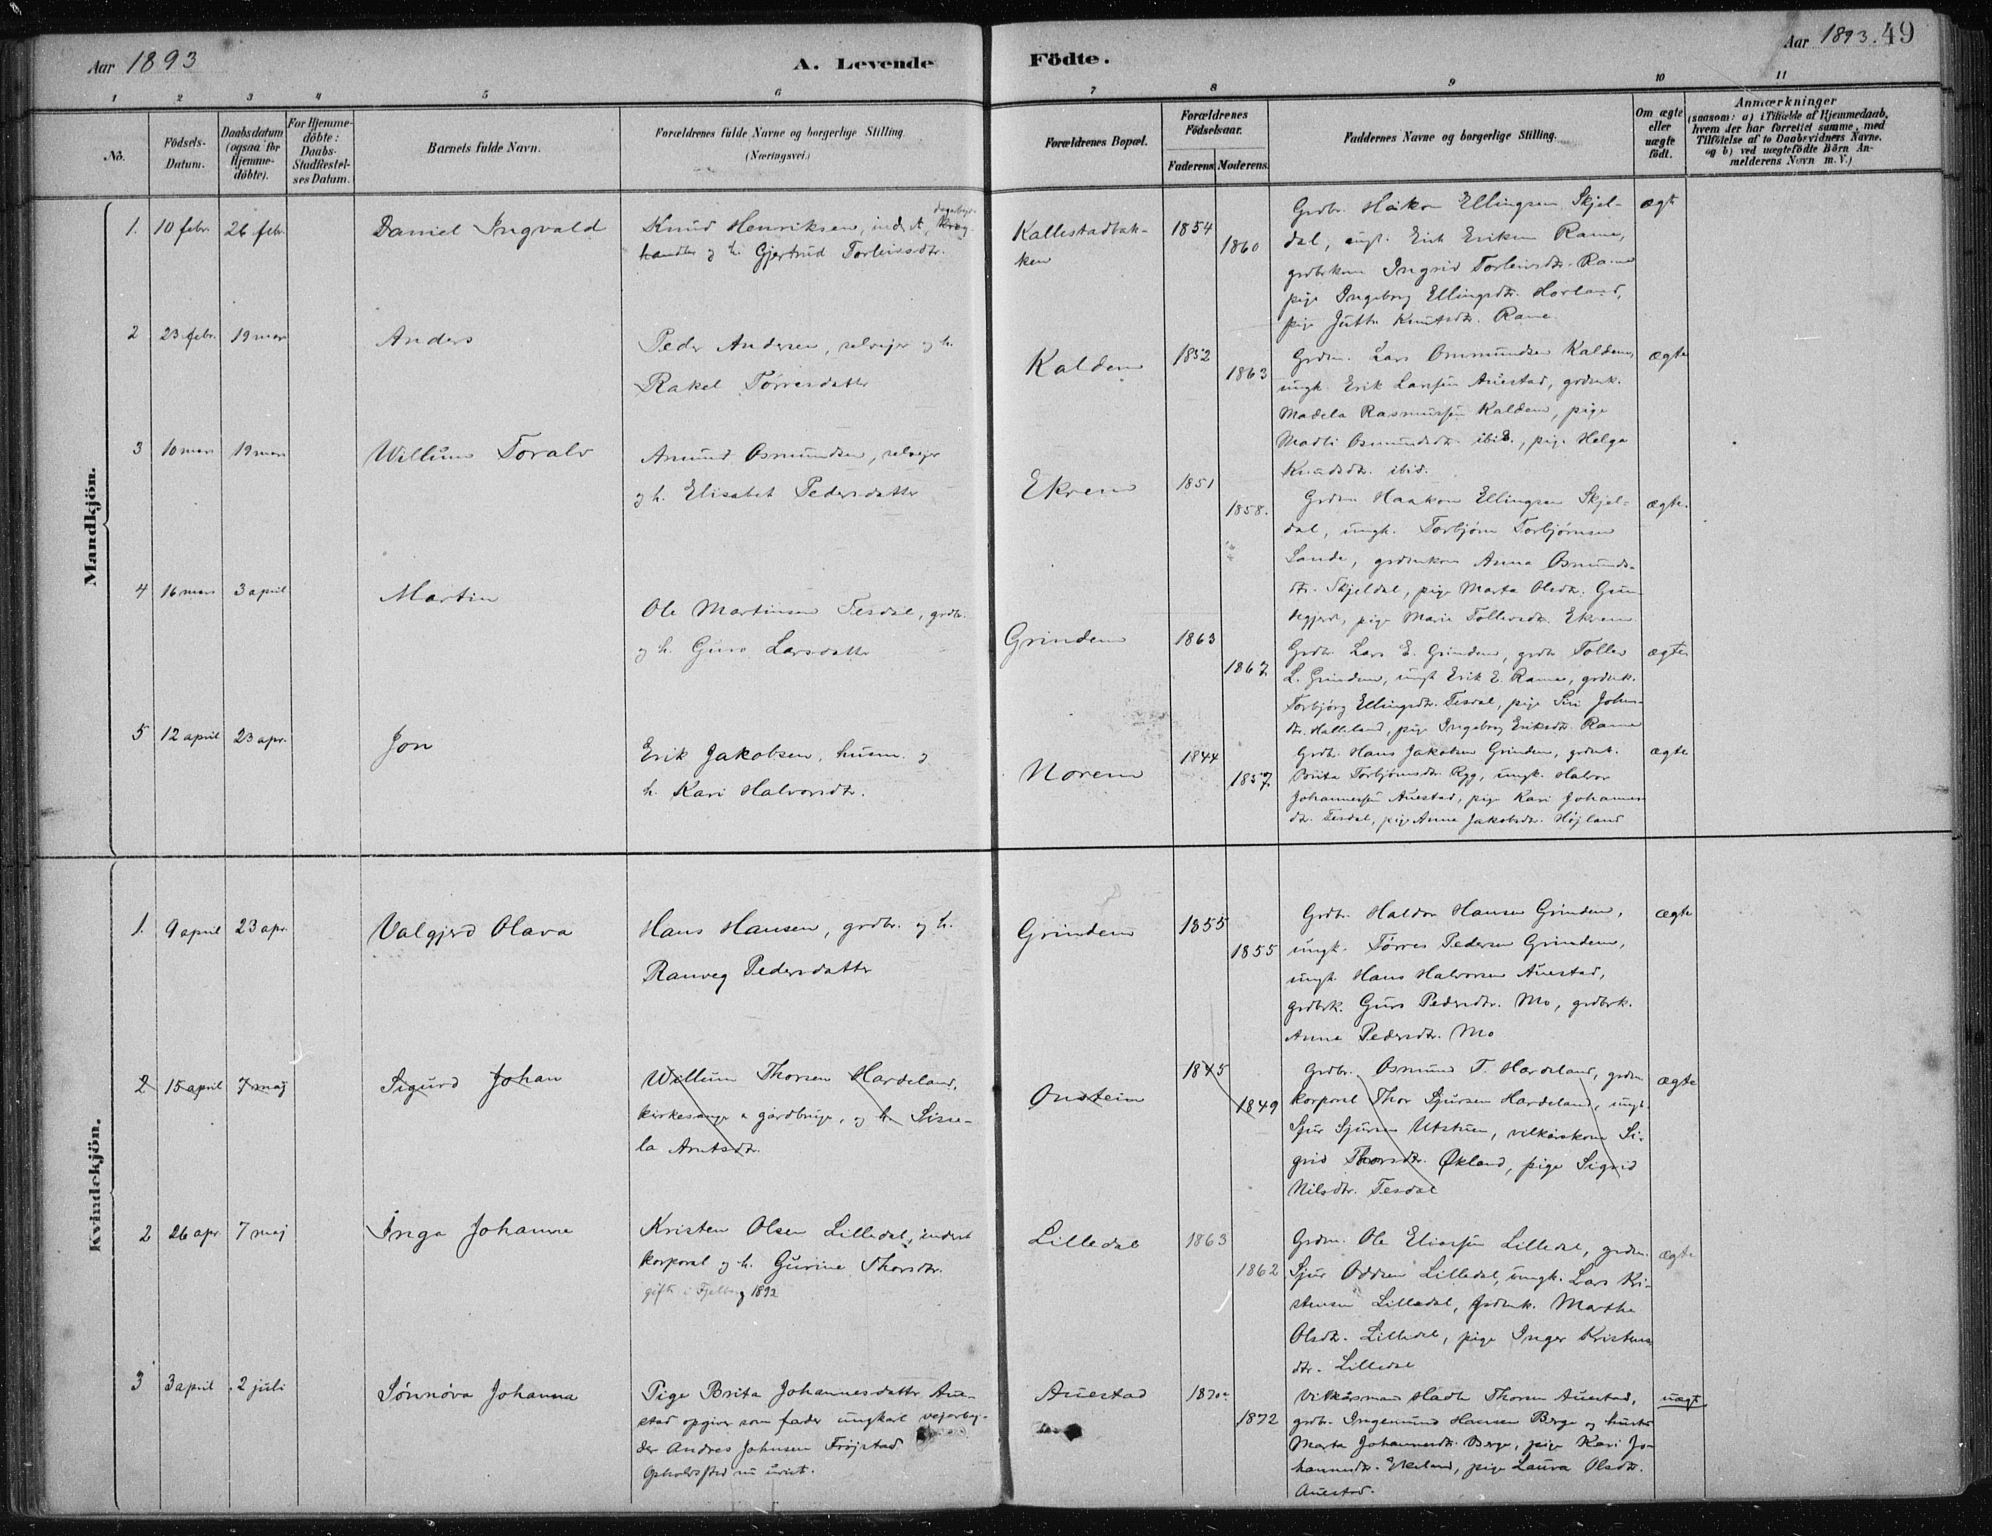 Aar 1893
A. Levende
Födte.
Aar 1893. 49
1 2 3 4 5 6 7 8 9 10 11
No.
Födsels-
Datum.
Daabsdatum
(ogsaa for
Hjemme-
döbte).
For Hjemme-
döbte:
Daabs-
Stadfæstel-
ses Datum.
Barnets fulde Navn.
Forældrenes fulde Navne og borgerlige Stilling.
(Næringsvei.)
Forældrenes Bopæl.
Forældrenes
Födselsaar.
Faderens. Moderens.
Faddernes Navne og borgerlige Stilling.
Om ægte
eller
uægte
födt.
Anmærkninger
(saasom: a) i Tilfælde af Hjemmedaab,
hvem der har forrettet samme, med
Tilföielse af to Daabsvidners Navne,
og b) ved uægtefödte Börn An-
melderens Navn m. V.)
Mandkjön.
1. 10 febr. 26 febr. Daniel Ingvald
Knud Henriksen, inderst,
handler og h. Gjertrud Torleivsdtr.
Kallestadbak-
ken
1854
1860
Grdbr. Håkon Ellingsen Skjel-
dal, ungk. Erik Eriksen Rame,
grdbrkone Ingrid Torleivsdtr. Rame
pige Ingeborg Ellingsdtr. Horland,
pige Jutta Knutsdtr. Rame.
ægte
2 23 febr. 19 mars Anders
Peder Andersen, selveier og h.
Rakel Tørresdatter
Kaldem
1852
1863
Grdm. Lars Ommundsen Kaldem,
ungk. Erik Larssen Auestad, grdmk.
Madela Rasmussen Kaldem, pige
Madli Osmundsdtr. ibid., pige Helga
Knudsdtr. ibid.
ægte
3 10 mars 19 mars Willum Toralv
Amund Osmundsen, selveier
og h. Elisabet Pedersdatter
Ekrem
1851
1858.
Grdm. Haakon Ellingsen Skjel-
dal, ungk. Torbjørn Torbjørnsen
Sande, grdmkone Anna Osmunds-
dtr. Skjeldal, pige Marta Olsdtr. Gun-
degjerd, pige Marie Tollevsdtr. Ekrem
ægte.
4 16 mars 3 april Martin
Ole Martinsen Tesdal, grdbr.
og h. Guro Larsdatter
Grindem
1863
1867.
Grdbr. Lars E. Grindem, grdbr. Tollev
L. Grindem, ungk. Erik E. Rame, grdmk.
Torbjörg Ellingsdtr. Tesdal, pige Siri Johns-
dtr. Halleland, pige Ingeborg Eriksdtr. Rame
ægte
5 12 april 23 apr. Jon
Erik Jakobsen, husm. og
h. Kari Halvorsdtr.
Norem
1844
1857.
Grdbr. Hans Jakobsen Grindem, grdmk.
Brita Torbjørnsdtr. Ryg, ungk. Halvor
Johannessen Auestad, pige Kari Johannes-
dtr. Tesdal, pige Anna Jakobsdtr. Højland
ægte
Kvindekjön.
1. 9 april 23 apr. Valgjerd Olava
Hans Hansen, grdbr. og h.
Ranveg Pedersdatter
Grindem
1855
1855
Grdbr. Haldor Hansen Grindem,
ungk. Tørres Pedersen Grindem,
ungk. Hans Halvorsen Auestad,
grdbrk. Guro Pedersdtr. Mo, grdbrk.
Anna Pedersdtr. Mo
ægte
2 15 april 7 maj Sigurd Johan
Willum Thorsen Hardeland,
kirkesanger & gårdbruger, og h. Sisse-
la Arntsdtr.
Onstein
1845
1849
Grdbr. Osmund T. Hardeland, grdm.
korporal Thor Sjursen Hardeland, ungk.
Sjur Sjursen Utstuen, vilkårskone Si-
grid Thorsdtr. Økland, pige Sigrid
Nilsdtr. Tesdal
ægte
2 26 apr 7 maj Inga Johanne
Kristen Olsen Lilledal, inderst
korporal og h. Gurine Thorsdtr.
gifte i Fjelberg 1892
Lilledal
1863
1862
Grdm. Ole Eliassen Lilledal, grdm.
Sjur Oddsen Lilledal, ungk. Lars Kri-
stensen Lilledal, grdmk. Martha
Olsdtr. Lilledal, pige Inger Kristens-
dtr. Lilledal
ægte
3 3 april 2 juli Sønnøva Johanna
Pige Brita Johannesdatter Aue-
stad opgiver som fader ungkarl vejarbej-
der Andres Johnsen Frøjstad
Opholdssted nu uvist.
Auestad
1870
1872
Vilkårsmand Hadle Thorsen Auestad,
grdbr. Ingemund Hansen Berge og hustru
Marta Johannesdtr. Berge, pige Kari Jo-
hannesdtr. Ekeland, pige Laura Olsdtr.
Auestad.
uægte